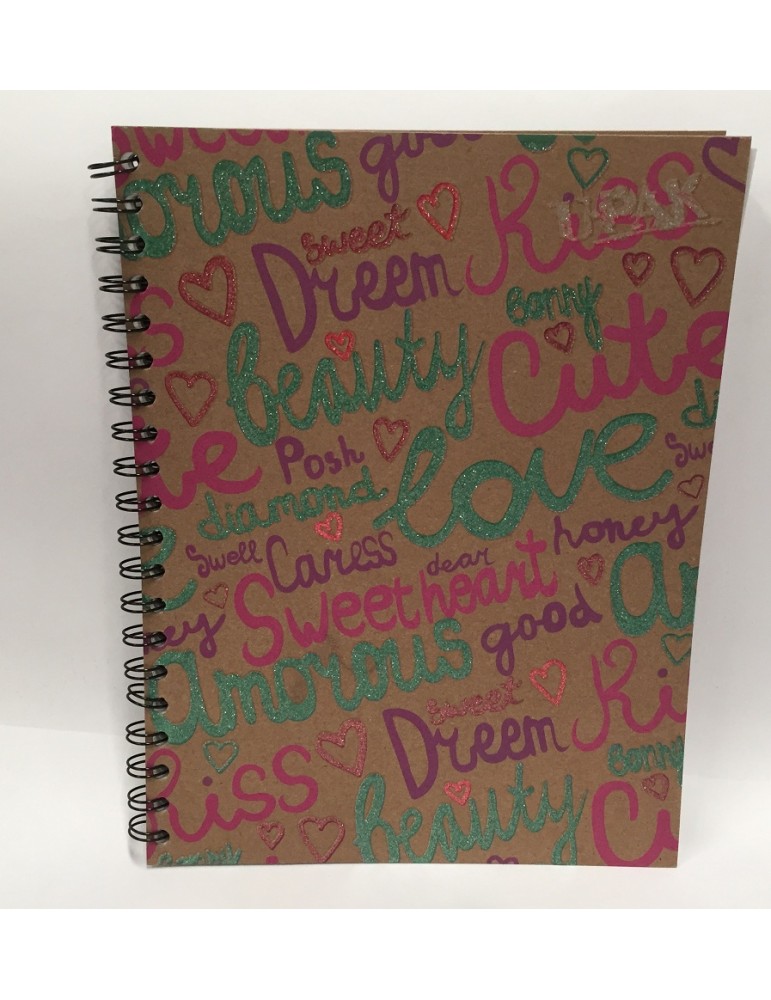 Sweet
orous good
U-PAK
Kiss
Sweet
Dreem
Bonny
beauty Cute
Posh
diamond love Swe
Swell Caress dear honey
Sweetheart
ey amorous good
Sweet
Dreem Ki
Kiss Bonny
beauty C